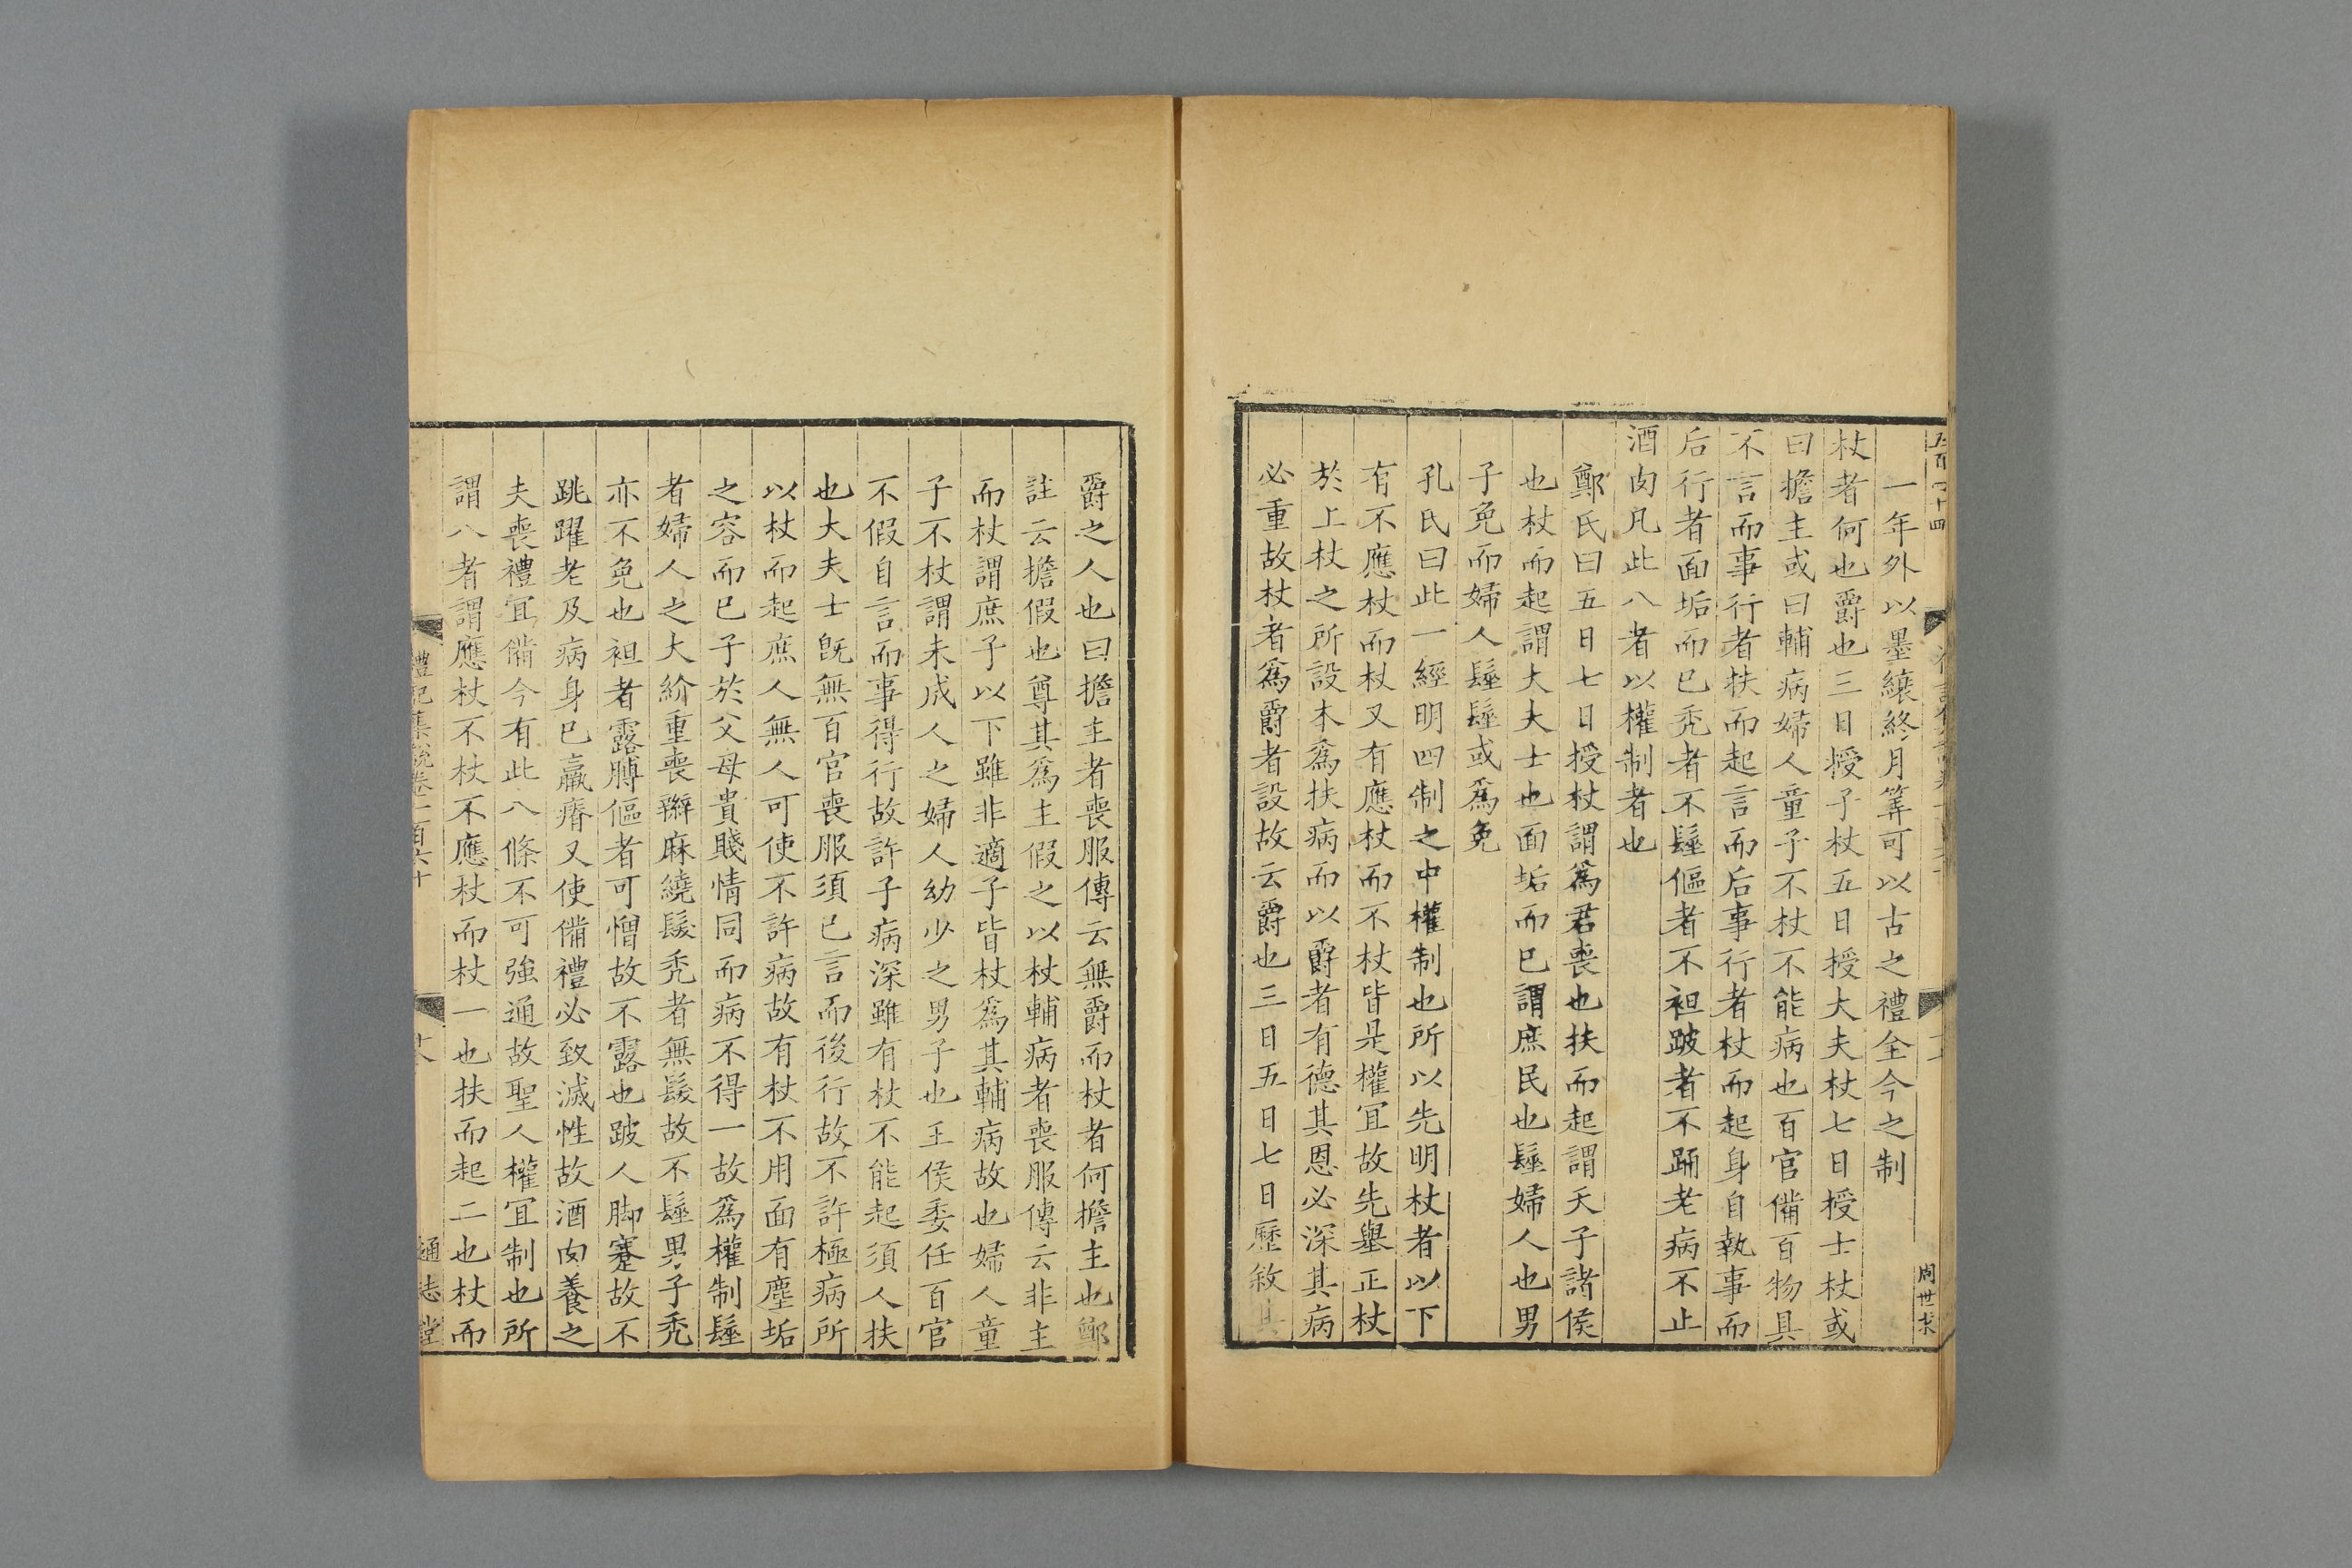 一年外以墨縗終月筭可以古之禮全今之制
杖者何也爵也三日授子杖五日授大夫杖七日授士杖或
曰擔主或曰輔病婦人童子不杖不能病也百官備百物具
不言而事行者扶而起言而后事行者杖而起身自執事而
后行者面垢而已禿者不髽傴者不袒跛者不踊老病不止
酒肉凡此八者以權制者也
鄭氏曰五日七日授杖謂爲君喪也扶而起謂天子諸侯
也杖而起謂大夫士也面垢而已謂庶民也髽婦人也男
子免而婦人髽髽或爲免
孔氏曰此一經明四制之中權制也所以先明杖者以下
有不應杖而杖又有應杖而不杖皆是權宜故先舉正杖
於上杖之所設本爲扶病而以爵者有德其恩必深其病
必重故杖者爲爵者設故云爵也三日五日七日歷敘其
周世求
爵之人也曰擔主者喪服傳云無爵而杖者何擔主也鄭
註云擔假也尊其爲主假之以杖輔病者喪服傳云非主
而杖謂庶子以下雖非適子皆杖爲其輔病故也婦人童
子不杖謂未成人之婦人幼少之男子也王侯委任百官
不假自言而事得行故許子病深雖有杖不能起須人扶
也大夫士旣無百官喪服須己言而後行故不許極病所
以杖而起庶人無人可使不許病故有杖不用面有塵垢
之容而已子於父母貴賤情同而病不得一故爲權制髽
者婦人之大紒重喪辮麻繞髮禿者無髮故不髽男子禿
亦不免也袒者露膊傴者可憎故不露也跛人脚蹇故不
跳躍老及病身已羸瘠又使備禮必致滅性故酒肉養之
夫喪禮宜備今有此八條不可強通故聖人權宜制也所
謂八者謂應杖不杖不應杖而杖一也扶而起二也杖而
禮記集說卷一百六十
通志堂